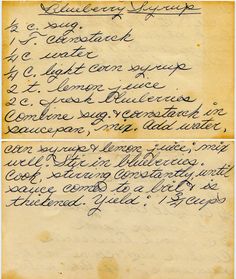 Blueberry Syrup
1/2 c. sug.
1 T. cornstarch
1/4 c water
1/4 c. light corn syrup
2 t. lemon juice
2 c. fresh blueberries
Combine sug. & cornstarch in
saucepan, mix. Add water,
corn syrup & lemon juice; mix
well. Stir in blueberries.
Cook, stirring constantly until
sauce comes to a boil & is
thickened. Yield: 1 3/4 cups